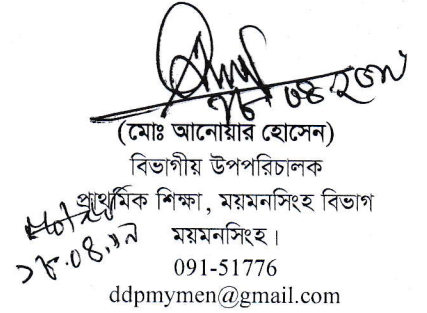 (মোঃ আনোয়ার হোসেন)
বিভাগীয় উপপরিচালক
প্রাথমিক শিক্ষা, ময়মনসিংহ বিভাগ
ময়মনসিংহ।
091-51776
ddpmymen@gmail.com